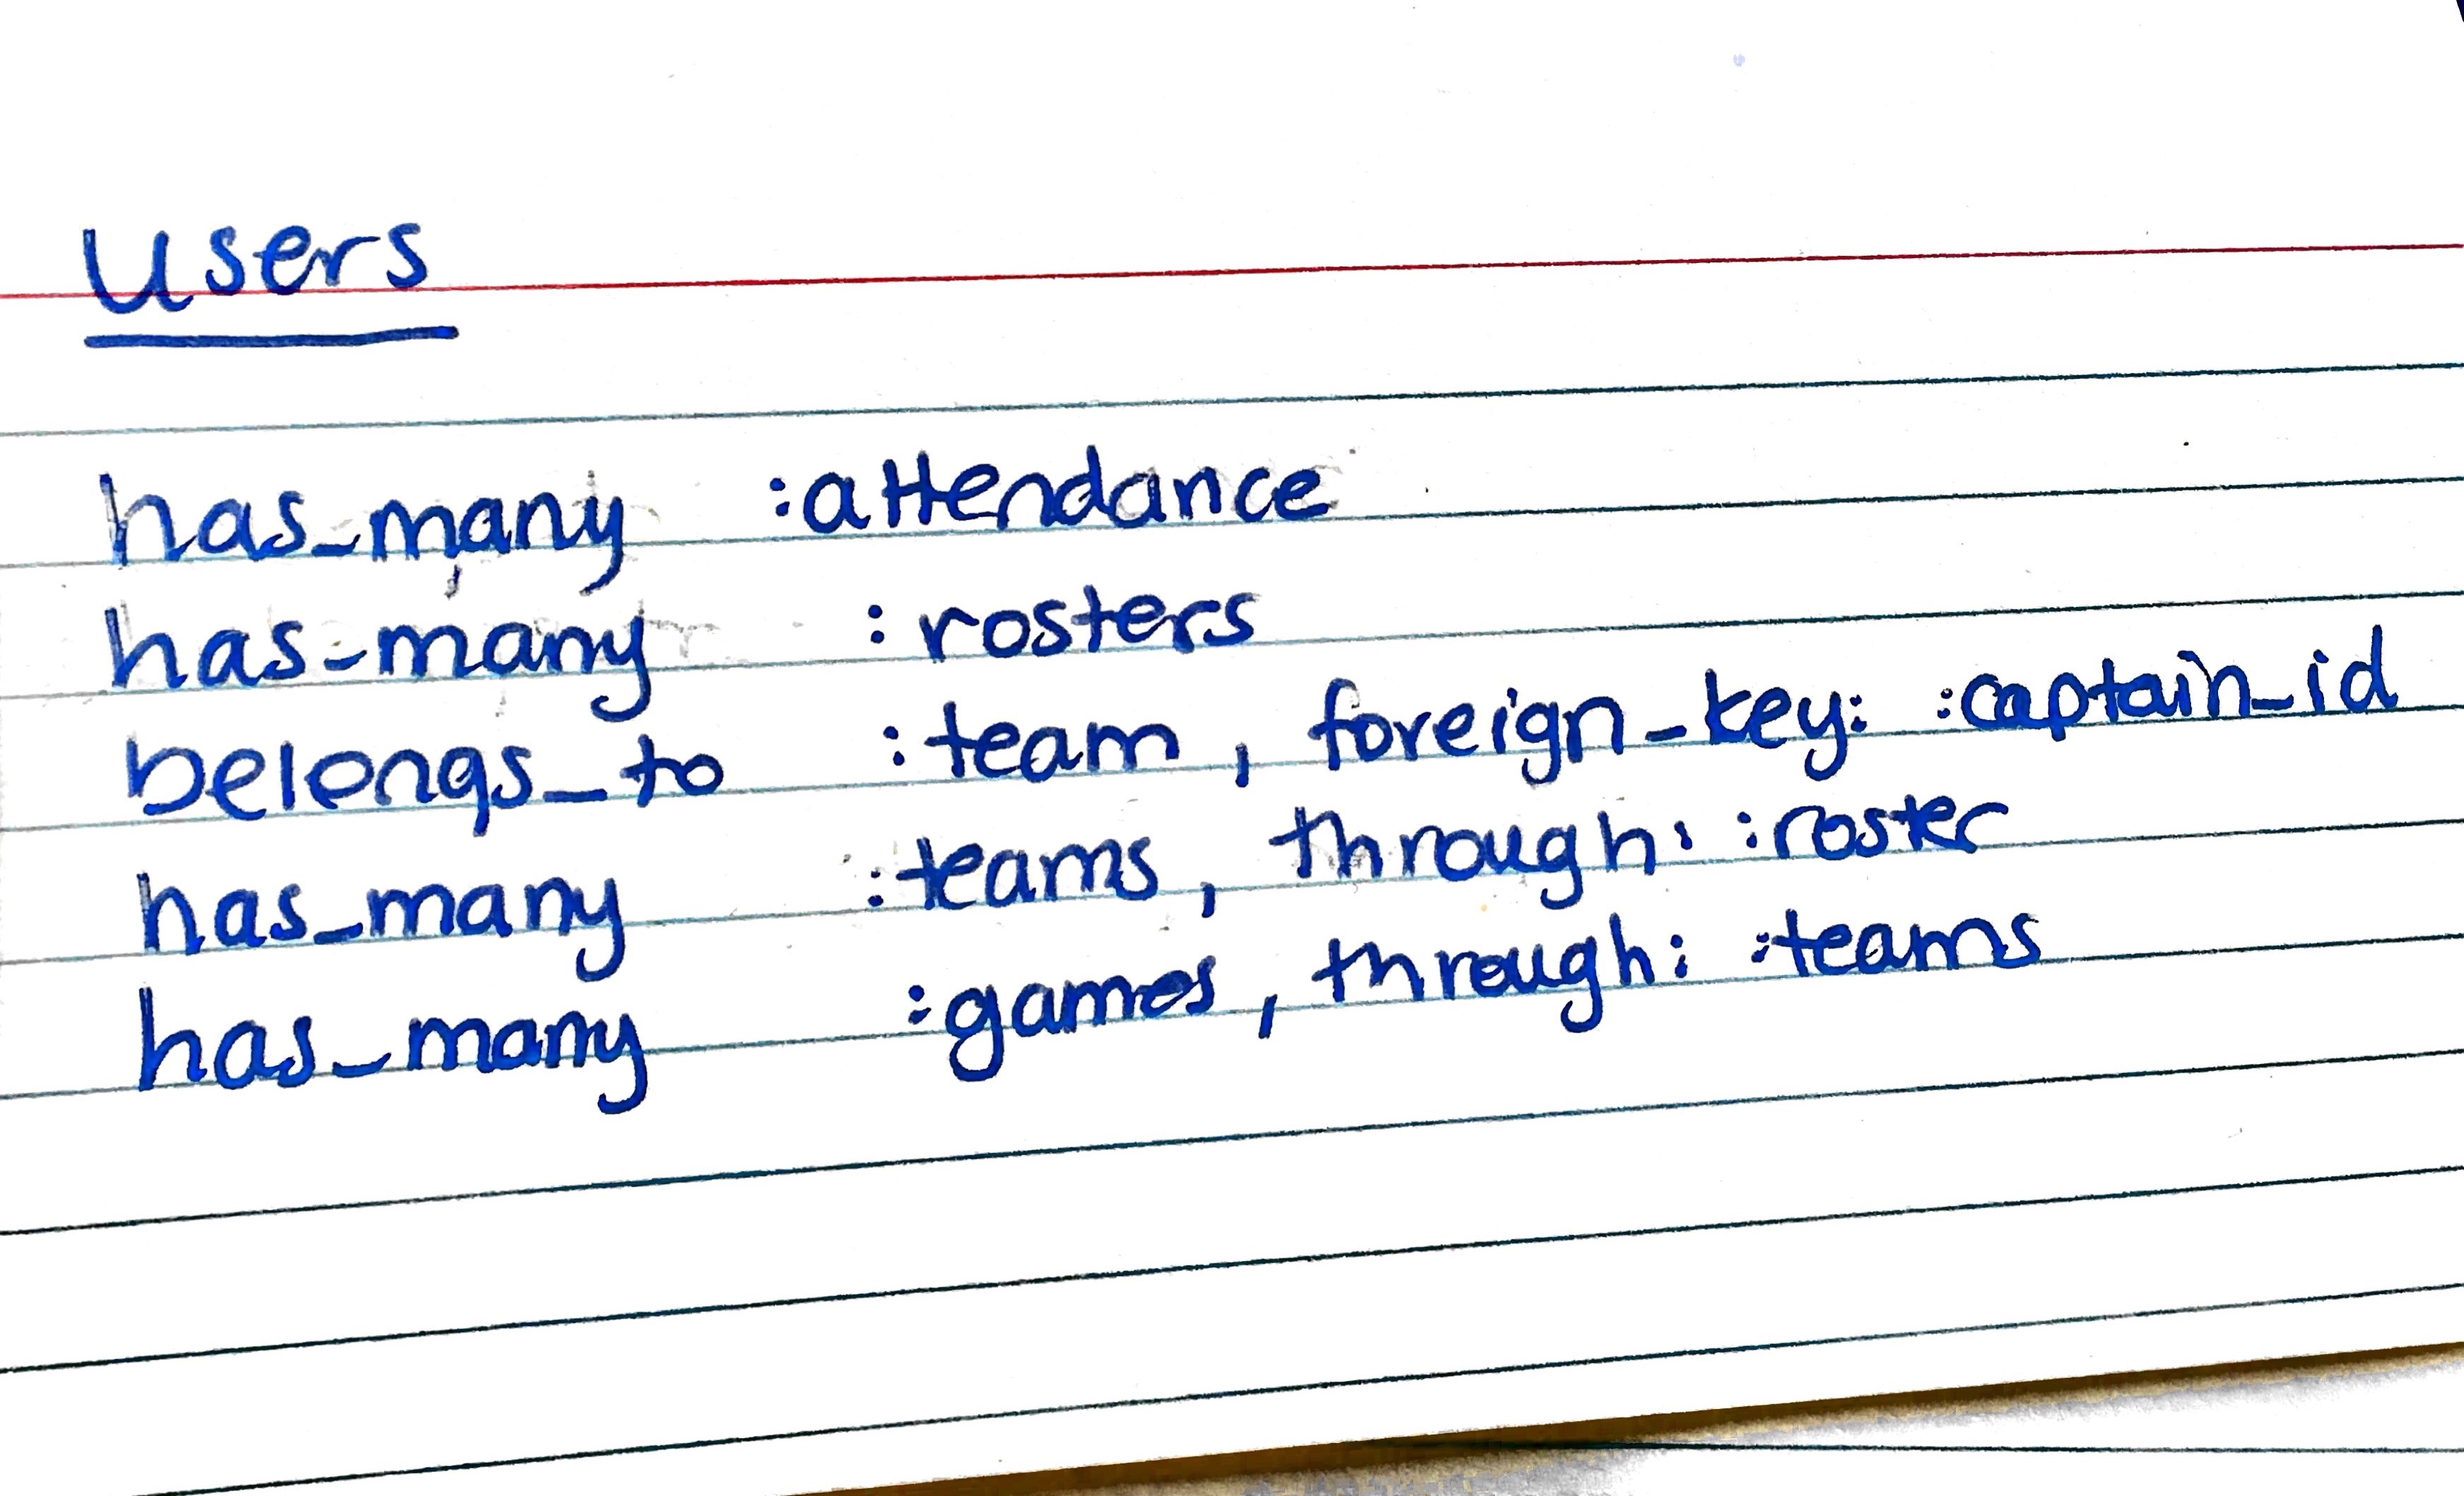 users
has_many :attendance
has_many :rosters
belongs_to :team, foreign_key: :captain_id
has_many :teams, through: :roster
has_many :games, through: :teams